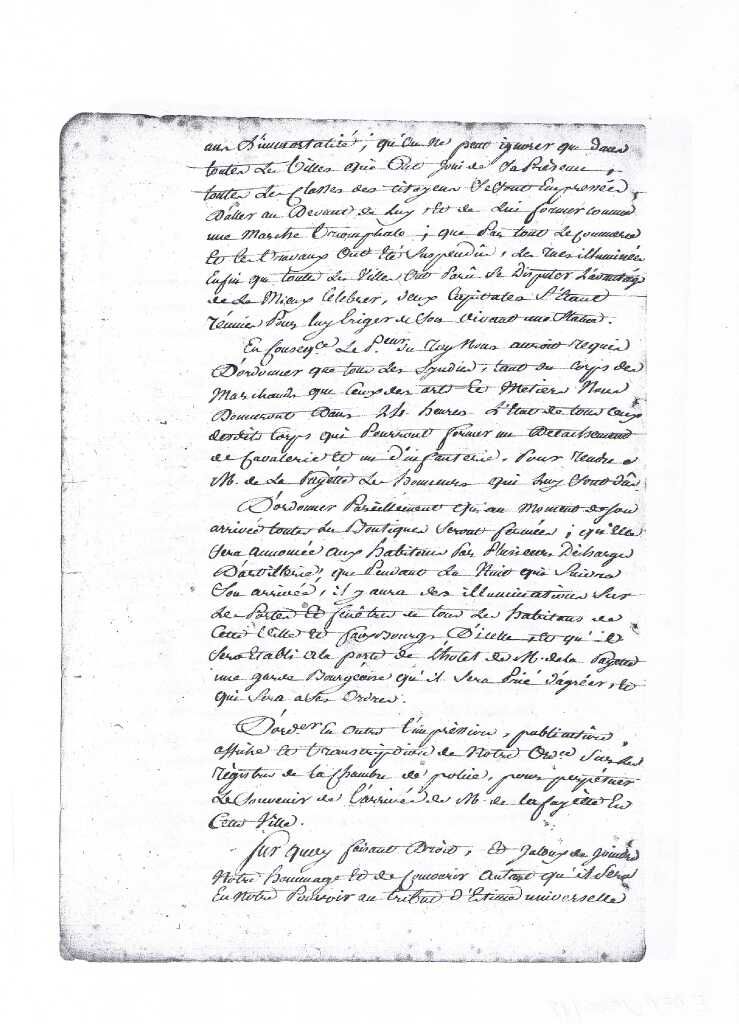 aux L'immortalité; qu'on ne peut ignorer que dans
toutes Les Villes qui Ont Joui de Sa Présence,
toutes Les Classes des citoyens Se Sont Empressées
D'aller au Devant de Luy et de Lui former comme
une Marche triomphale; que Par tout Le Commerce
Et les travaux Ont Eté Suspendûs, Les Rues illuminées
Enfin que toutes Les Villes Ont Paru Se Disputer L'avantage
de Le Mieux Celebrer, deux Capitales S'étant
réunies Pour luy Eriger de Son vivant une Statue.
En Conseqce Le Pr. eur du Roy Nous auroit requis
D'ordonner que tous Les Syndics, tant du Corps des
Marchands que Ceux des arts Et Metiers Nous
Donneront Dans 24 heures L'Etat de tous Ceux
desdits Corps qui Pourront former un Detachement
de Cavalerie Et un d'infanterie, Pour rendre a
M. de La Fayette Les honneurs qui luy Sont dûs
D'ordonner Pareillement qu'au moment de Son
arrivée toutes Les Boutiques Seront fermées; qu'elle
Sera annoncée aux habitans Par Plusieurs Décharges
D'artillerie, que Pendant La Nuit qui Suivra
Son arrivée, il y aura des illuminations Sur
Les Portes Et fenêtres de tous Les habitans de
Cette Ville Et fauxbourgs D'icelle, et qu'il
Sera Etabli a la porte de L'hôtel de M. de la Fayette
une garde Bourgeoise qu'il Sera Prié d'agréer, et
qui Sera a Ses Ordres.
D'order En outre l'impression, publication,
affiche et transcription de Notre Ordce Sur les
régistres de la Chambre de police, pour perpétuer
Le Souvenir de l'arrivée de M. de la fayette En
Cette Ville.
Sur quoy faisant Droit, Et Jaloux de Joindre
Notre hommage Et de Concourir Autant qu'il Sera
En Notre Pouvoir au tribut d'Estime universelle